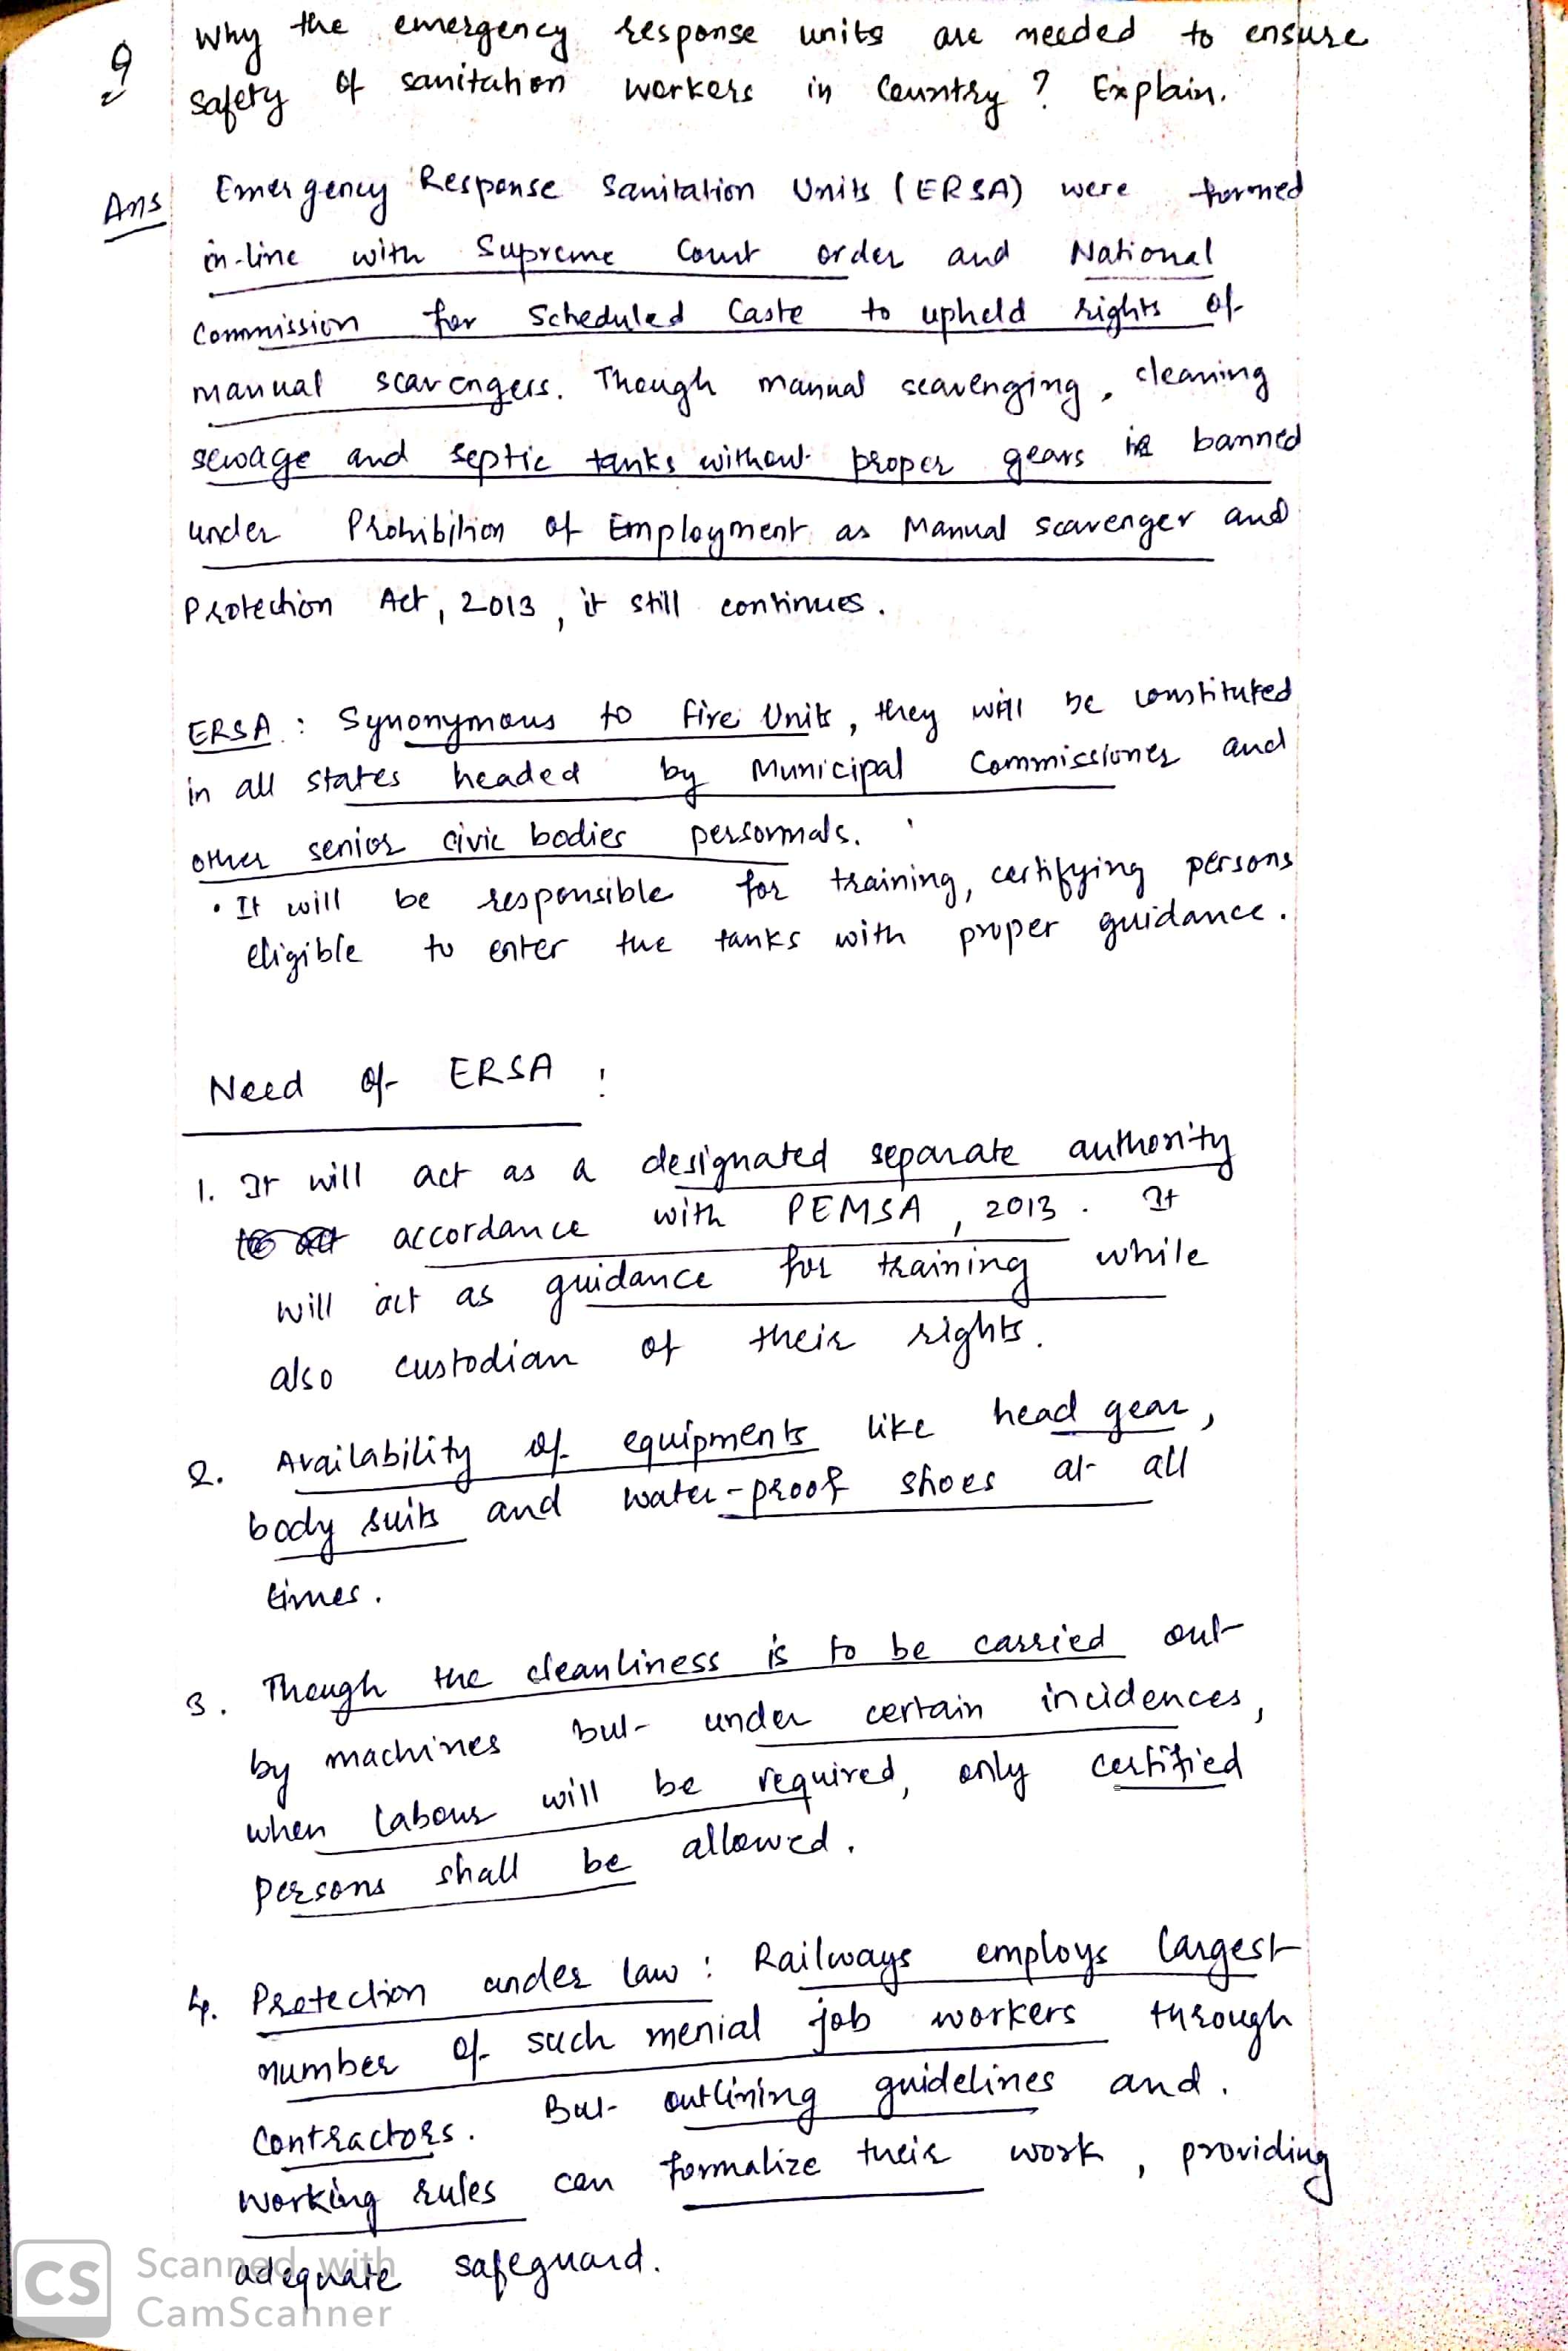 Q Why the emergency response units are needed to ensure
safety of sanitation workers in Country ? Explain.
Ans Emergency Response Sanitation Units (ERSA) were formed
in-line with Supreme Court order and National
Commission for Scheduled Caste to upheld rights of
manual scavengers. Though manual scavenging, cleaning
sewage and septic tanks without proper gears is banned
under Prohibition of Employment as Manual scavenger and
Protection Act, 2013, it still continues.
ERSA : Synonymous to Fire Units, they will be constituted
in all states headed by Municipal Commissioner and
other senior civic bodies personnals.
• It will be responsible for training, certifying persons
eligible to enter the tanks with proper guidance.
Need of ERSA :
1. It will act as a designated separate authority
accordance with PEMSA, 2013. It
will act as guidance for training while
also custodian of their rights.
2. Availability of equipments like head gear,
body suits and water-proof shoes at all
times.
3. Though the cleanliness is to be carried out
by machines but under certain incidences,
when labour will be required, only certified
persons shall be allowed.
4. Protection under law : Railways employs largest
number of such menial job workers through
Contractors. But outlining guidelines and.
working rules can formalize their work, providing
adequate safeguard.
CS Scanned with
CamScanner